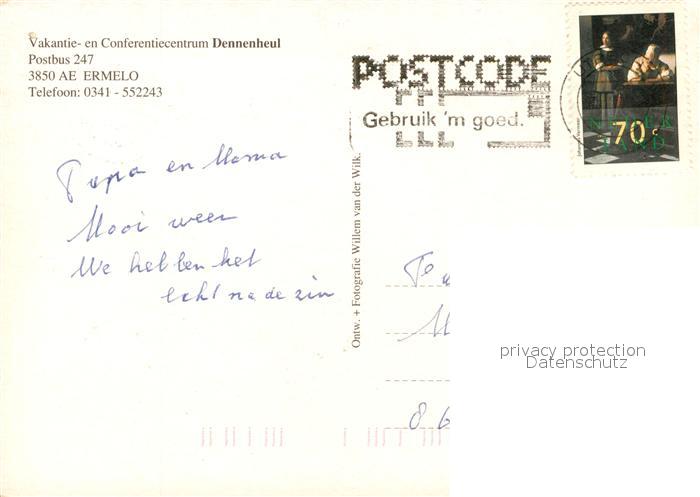 Vakantie- en Conferentiecentrum Dennenheul
Postbus 247
3850 AE ERMELO
Telefoon: 0341 - 552243
POSTCODE
Gebruik 'm goed.
NEDER
LAND
70 c
Johannes Vermeer
Papa en Mama
Mooi weer
We hebben het
echt na de zin
Ontw. + Fotografie Willem van der Wilk.
86
privacy protection
Datenschutz